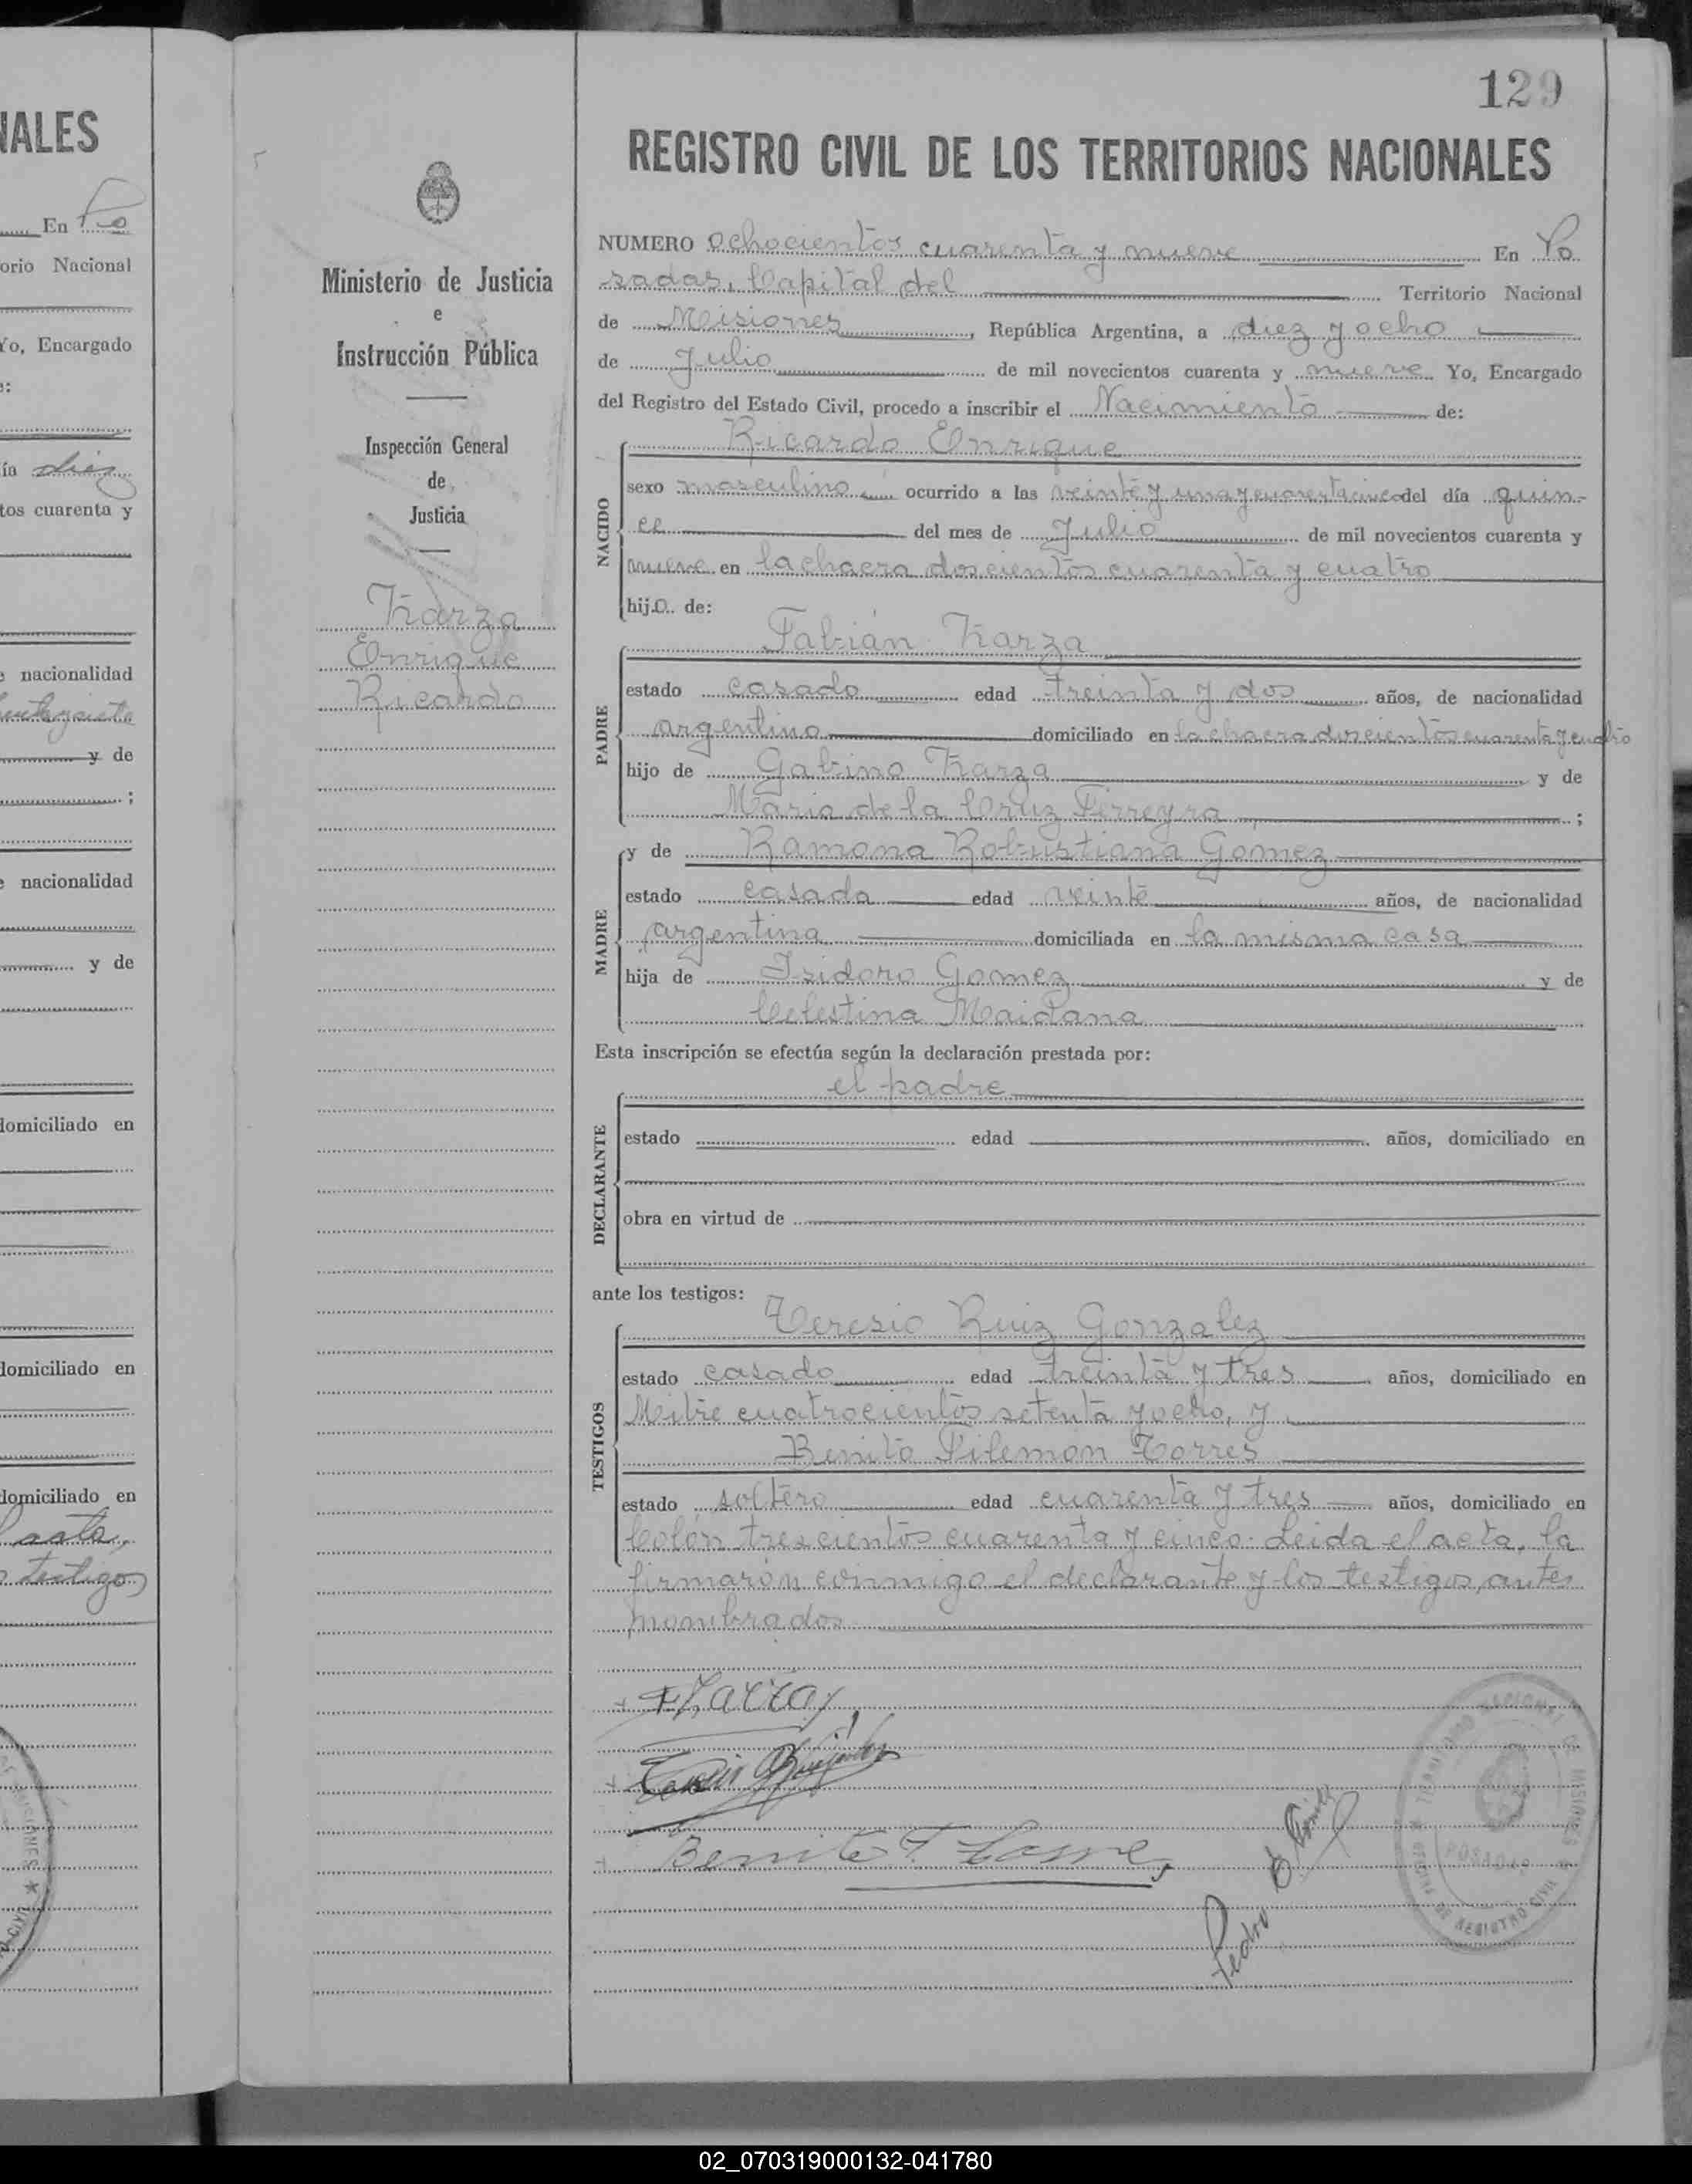 NALES
En Po
orio Nacional
Yo, Encargado
e:
ía diez
tos cuarenta y
e nacionalidad
y de
;
e nacionalidad
y de
domiciliado en
domiciliado en
domiciliado en
acta,
testigos
Ministerio de Justicia
e
Instrucción Pública
Inspección General
de
Justicia
Zarza
Enrique
Ricardo
129
REGISTRO CIVIL DE LOS TERRITORIOS NACIONALES
NUMERO ochocientos cuarenta y nueve En Po
sadas, Capital del Territorio Nacional
de Misiones, República Argentina, a diez y ocho
de Julio de mil novecientos cuarenta y nueve Yo, Encargado
del Registro del Estado Civil, procedo a inscribir el Nacimiento de:
Ricardo Enrique
NACIDO
sexo masculino ocurrido a las veinte y una y cuarenta cinco del día quin-
ce del mes de Julio de mil novecientos cuarenta y
nueve en la chacra doscientos cuarenta y cuatro
hijo de:
Fabián Zarza
PADRE
estado casado edad treinta y dos años, de nacionalidad
argentino domiciliado en la chacra doscientos cuarenta y cuatro
hijo de Gabino Zarza y de
Maria de la Cruz Firreyra ;
y de Ramona Robustiana Gomez
MADRE
estado casada edad veinte años, de nacionalidad
argentina domiciliada en la misma casa
hija de Isidoro Gomez y de
Celestina Maidana
Esta inscripción se efectúa según la declaración prestada por:
el padre
DECLARANTE
estado edad años, domiciliado en
obra en virtud de
ante los testigos:
Teresio Ruiz Gonzalez
TESTIGOS
estado casado edad treinta y tres años, domiciliado en
Mitre cuatrocientos setenta y ocho, y
Benito Filemon Torres
estado soltero edad cuarenta y tres años, domiciliado en
Colón trescientos cuarenta y cinco. Leida el acta, la
firmarón conmigo el declarante y los testigos antes
nombrados
FZarza
Benito F. Torres
Pedro
POSADAS
REGISTRO CIVIL
MISIONES
02_070319000132-041780